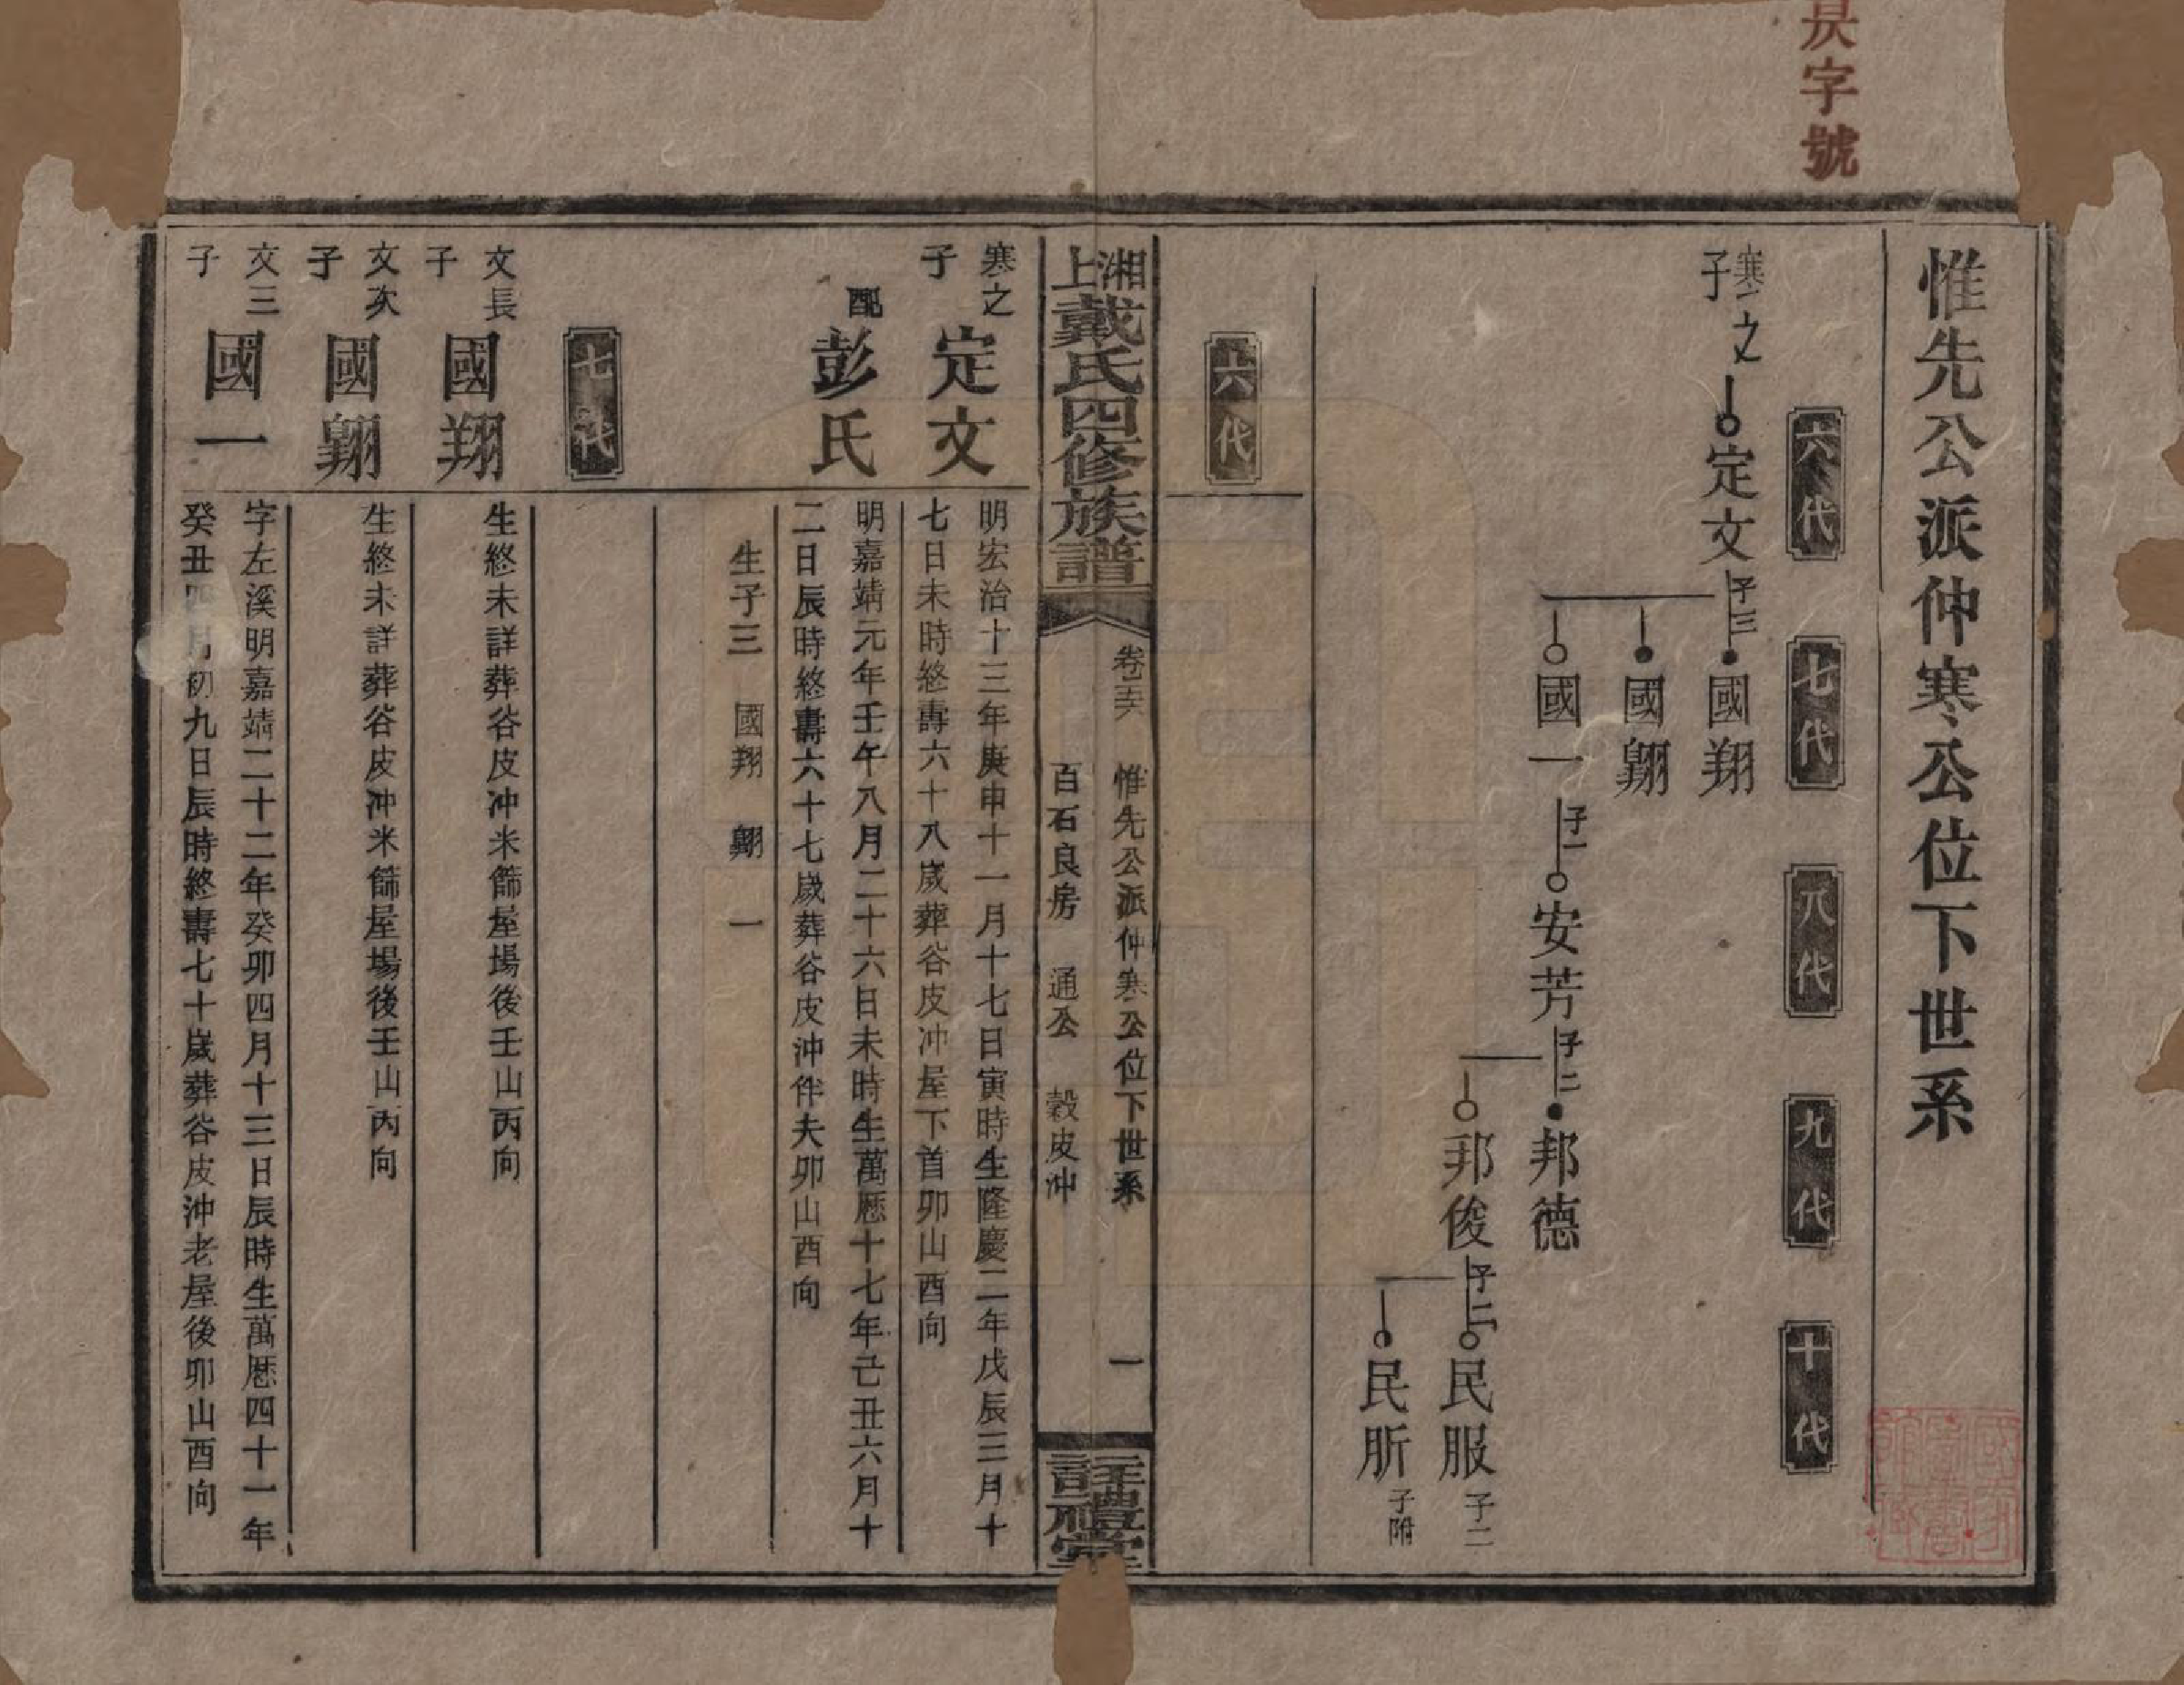 昃字號
惟先公派仲寒公位下世系
六代
七代
八代
九代
十代
寒之子
定文 子三
國翔
國翶
國一 子一
安芳 子二
邦德
邦俊 子二
民服 子二
民肵 子附
六代
湘上戴氏四修族譜
卷 惟先公派仲寒公位下世系 一
百石良房 通公 榖皮沖
註禮堂
寒之子 定文
明宏治十三年庚申十一月十七日寅時生隆慶二年戊辰三月十
七日未時終壽六十八歲葬谷皮冲屋下首卯山酉向
配 彭氏
明嘉靖元年壬午八月二十六日未時生萬厯十七年己丑六月十
二日辰時終壽六十七歲葬谷皮沖伴夫卯山酉向
生子三 國翔 翶 一
七代
文長子 國翔
生終未詳葬谷皮冲米篩屋塲後壬山丙向
文次子 國翶
生終未詳葬谷皮冲米篩屋塲後壬山丙向
文三子 國一
字左溪明嘉靖二十二年癸卯四月十三日辰時生萬厯四十一年
癸丑四月初九日辰時終壽七十歲葬谷皮沖老屋後卯山酉向